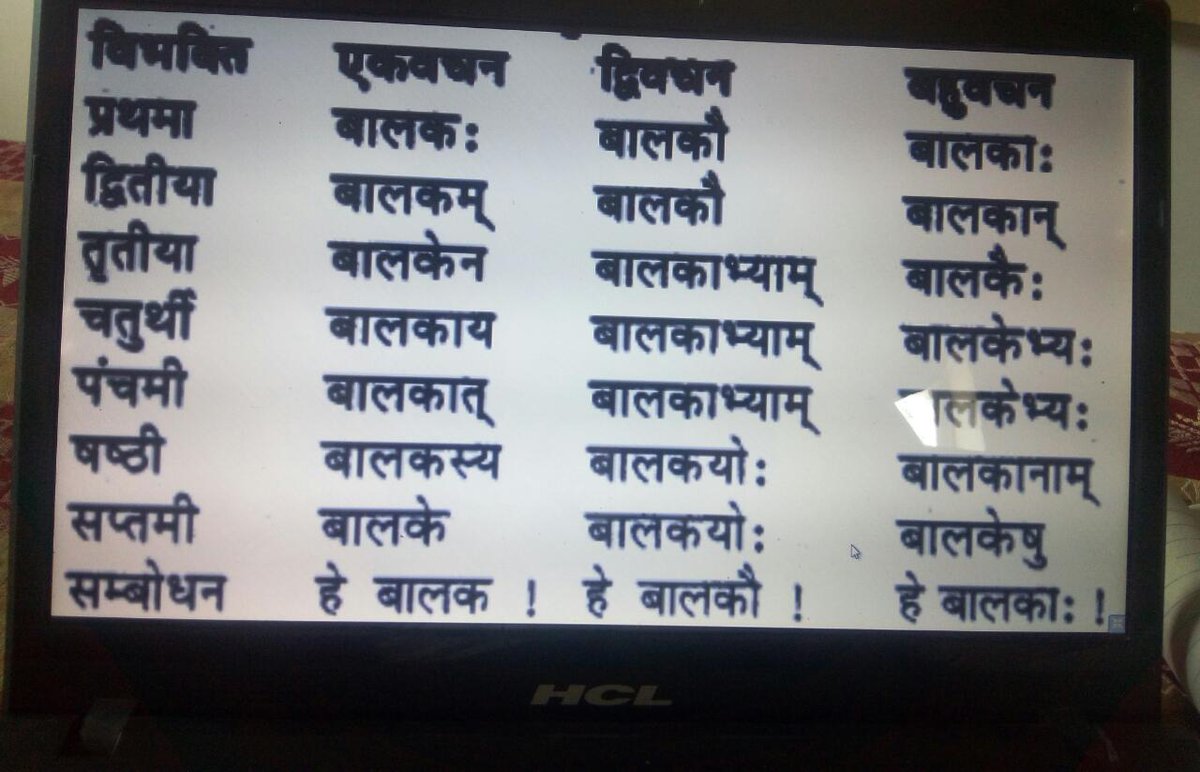 विभक्ति एकवचन द्विवचन बहुवचन
प्रथमा बालकः बालकौ बालकाः
द्वितीया बालकम् बालकौ बालकान्
तृतीया बालकेन बालकाभ्याम् बालकैः
चतुर्थी बालकाय बालकाभ्याम् बालकेभ्यः
पंचमी बालकात् बालकाभ्याम् बालकेभ्यः
षष्ठी बालकस्य बालकयोः बालकानाम्
सप्तमी बालके बालकयोः बालकेषु
सम्बोधन हे बालक ! हे बालकौ ! हे बालकाः !
HCL